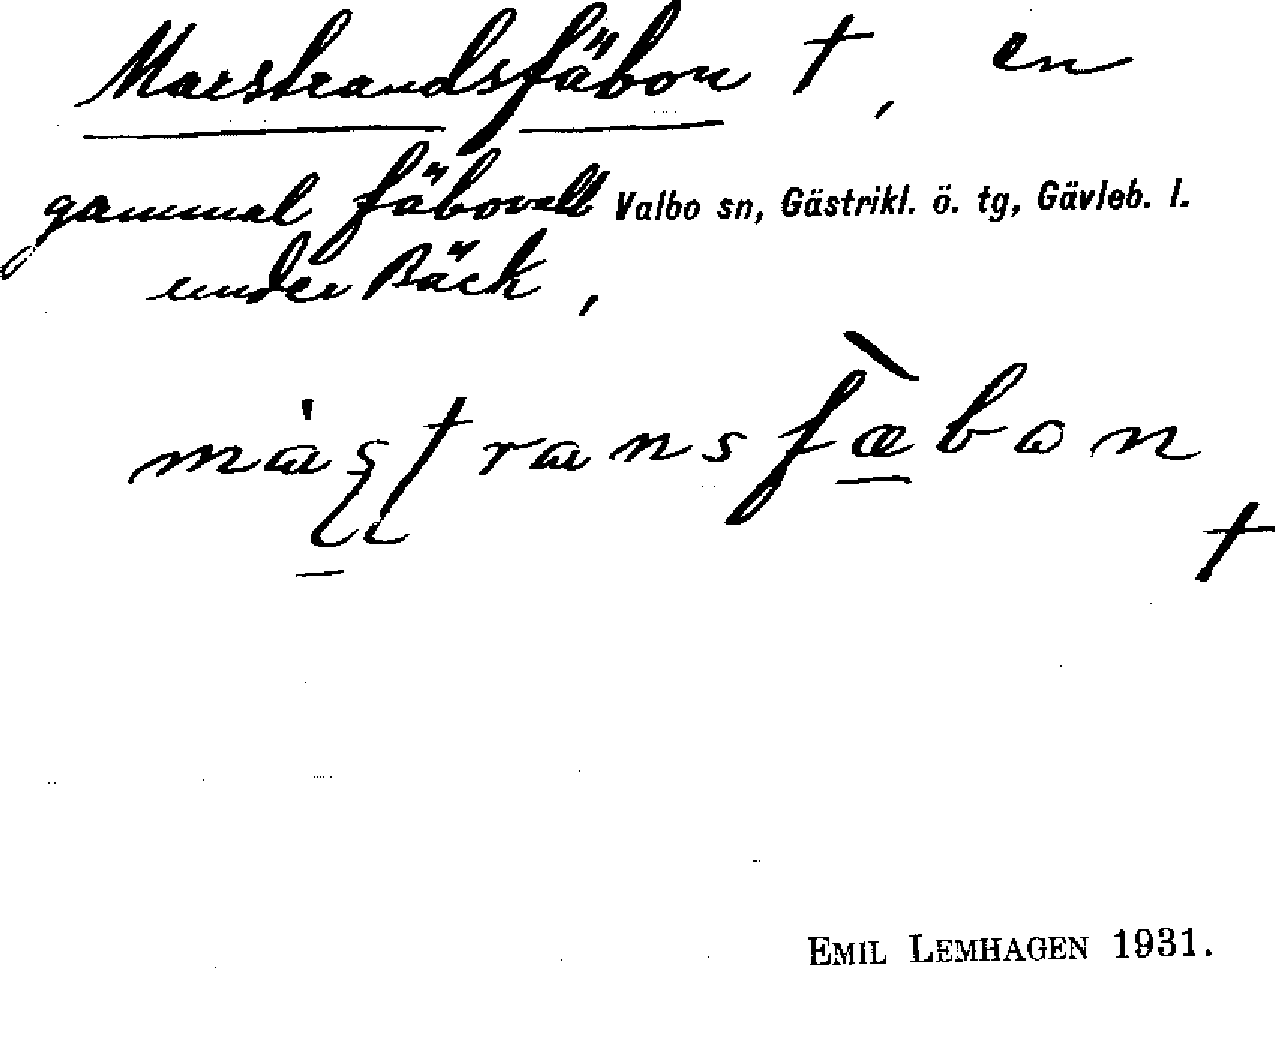 Marstrandsfäbon †, en
gammal fäbovall Valbo sn, Gästrikl. ö. tg, Gävleb. l.
under Bäck,
EMIL LEMHAGEN 1931.